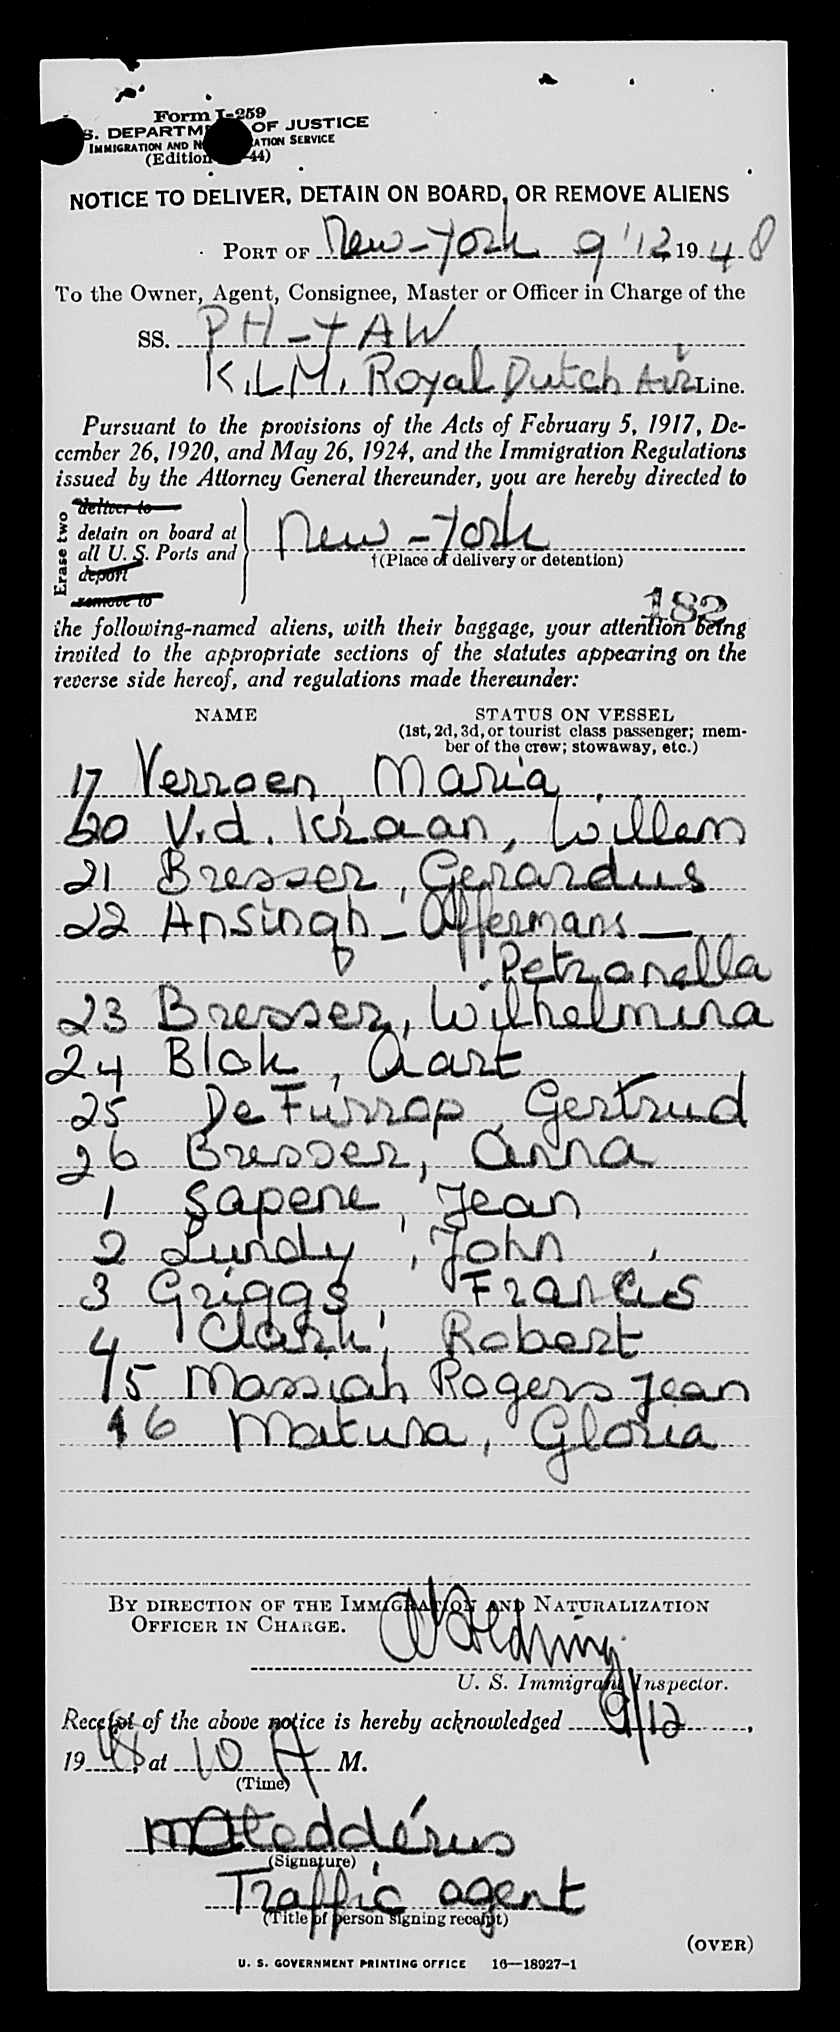 Form I-259
S. DEPARTM OF JUSTICE
IMMIGRATION AND N ATION SERVICE
(Edition -44)
NOTICE TO DELIVER, DETAIN ON BOARD, OR REMOVE ALIENS
PORT OF New-York 9'12, 1948
To the Owner, Agent, Consignee, Master or Officer in Charge of the
SS. PH-TAW
K.L.M. Royal Dutch Air Line.
Pursuant to the provisions of the Acts of February 5, 1917, De-
cember 26, 1920, and May 26, 1924, and the Immigration Regulations
issued by the Attorney General thereunder, you are hereby directed to
Erase two
deliver to
detain on board at
all U. S. Ports and
deport
remove to
New-York
†(Place of delivery or detention)
182
the following-named aliens, with their baggage, your attention being
invited to the appropriate sections of the statutes appearing on the
reverse side hereof, and regulations made thereunder:
NAME STATUS ON VESSEL
(1st, 2d, 3d, or tourist class passenger; mem-
ber of the crew; stowaway, etc.)
17 Verroen, Maria
20 V.d. Kraan, Willem
21 Bresser, Gerardus
22 Ansingh - Offermans —
Petranella
23 Bresser, Wilhelmina
24 Blok, Aart
25 De Furrap Gertrud
26 Bresser, Anna
1 Sapene, Jean
2 Lundy, John
3 Griggs, Francis
4 Clark, Robert
15 Massiah Rogers Jean
16 Matura, Gloria
BY DIRECTION OF THE IMMIGRATION AND NATURALIZATION
OFFICER IN CHARGE.
U. S. Immigrant Inspector.
Receipt of the above notice is hereby acknowledged 9/12,
1948, at 10 A M.
(Time)
(Signature)
Traffic agent
(Title of person signing receipt)
(OVER)
U. S. GOVERNMENT PRINTING OFFICE 16—18927-1